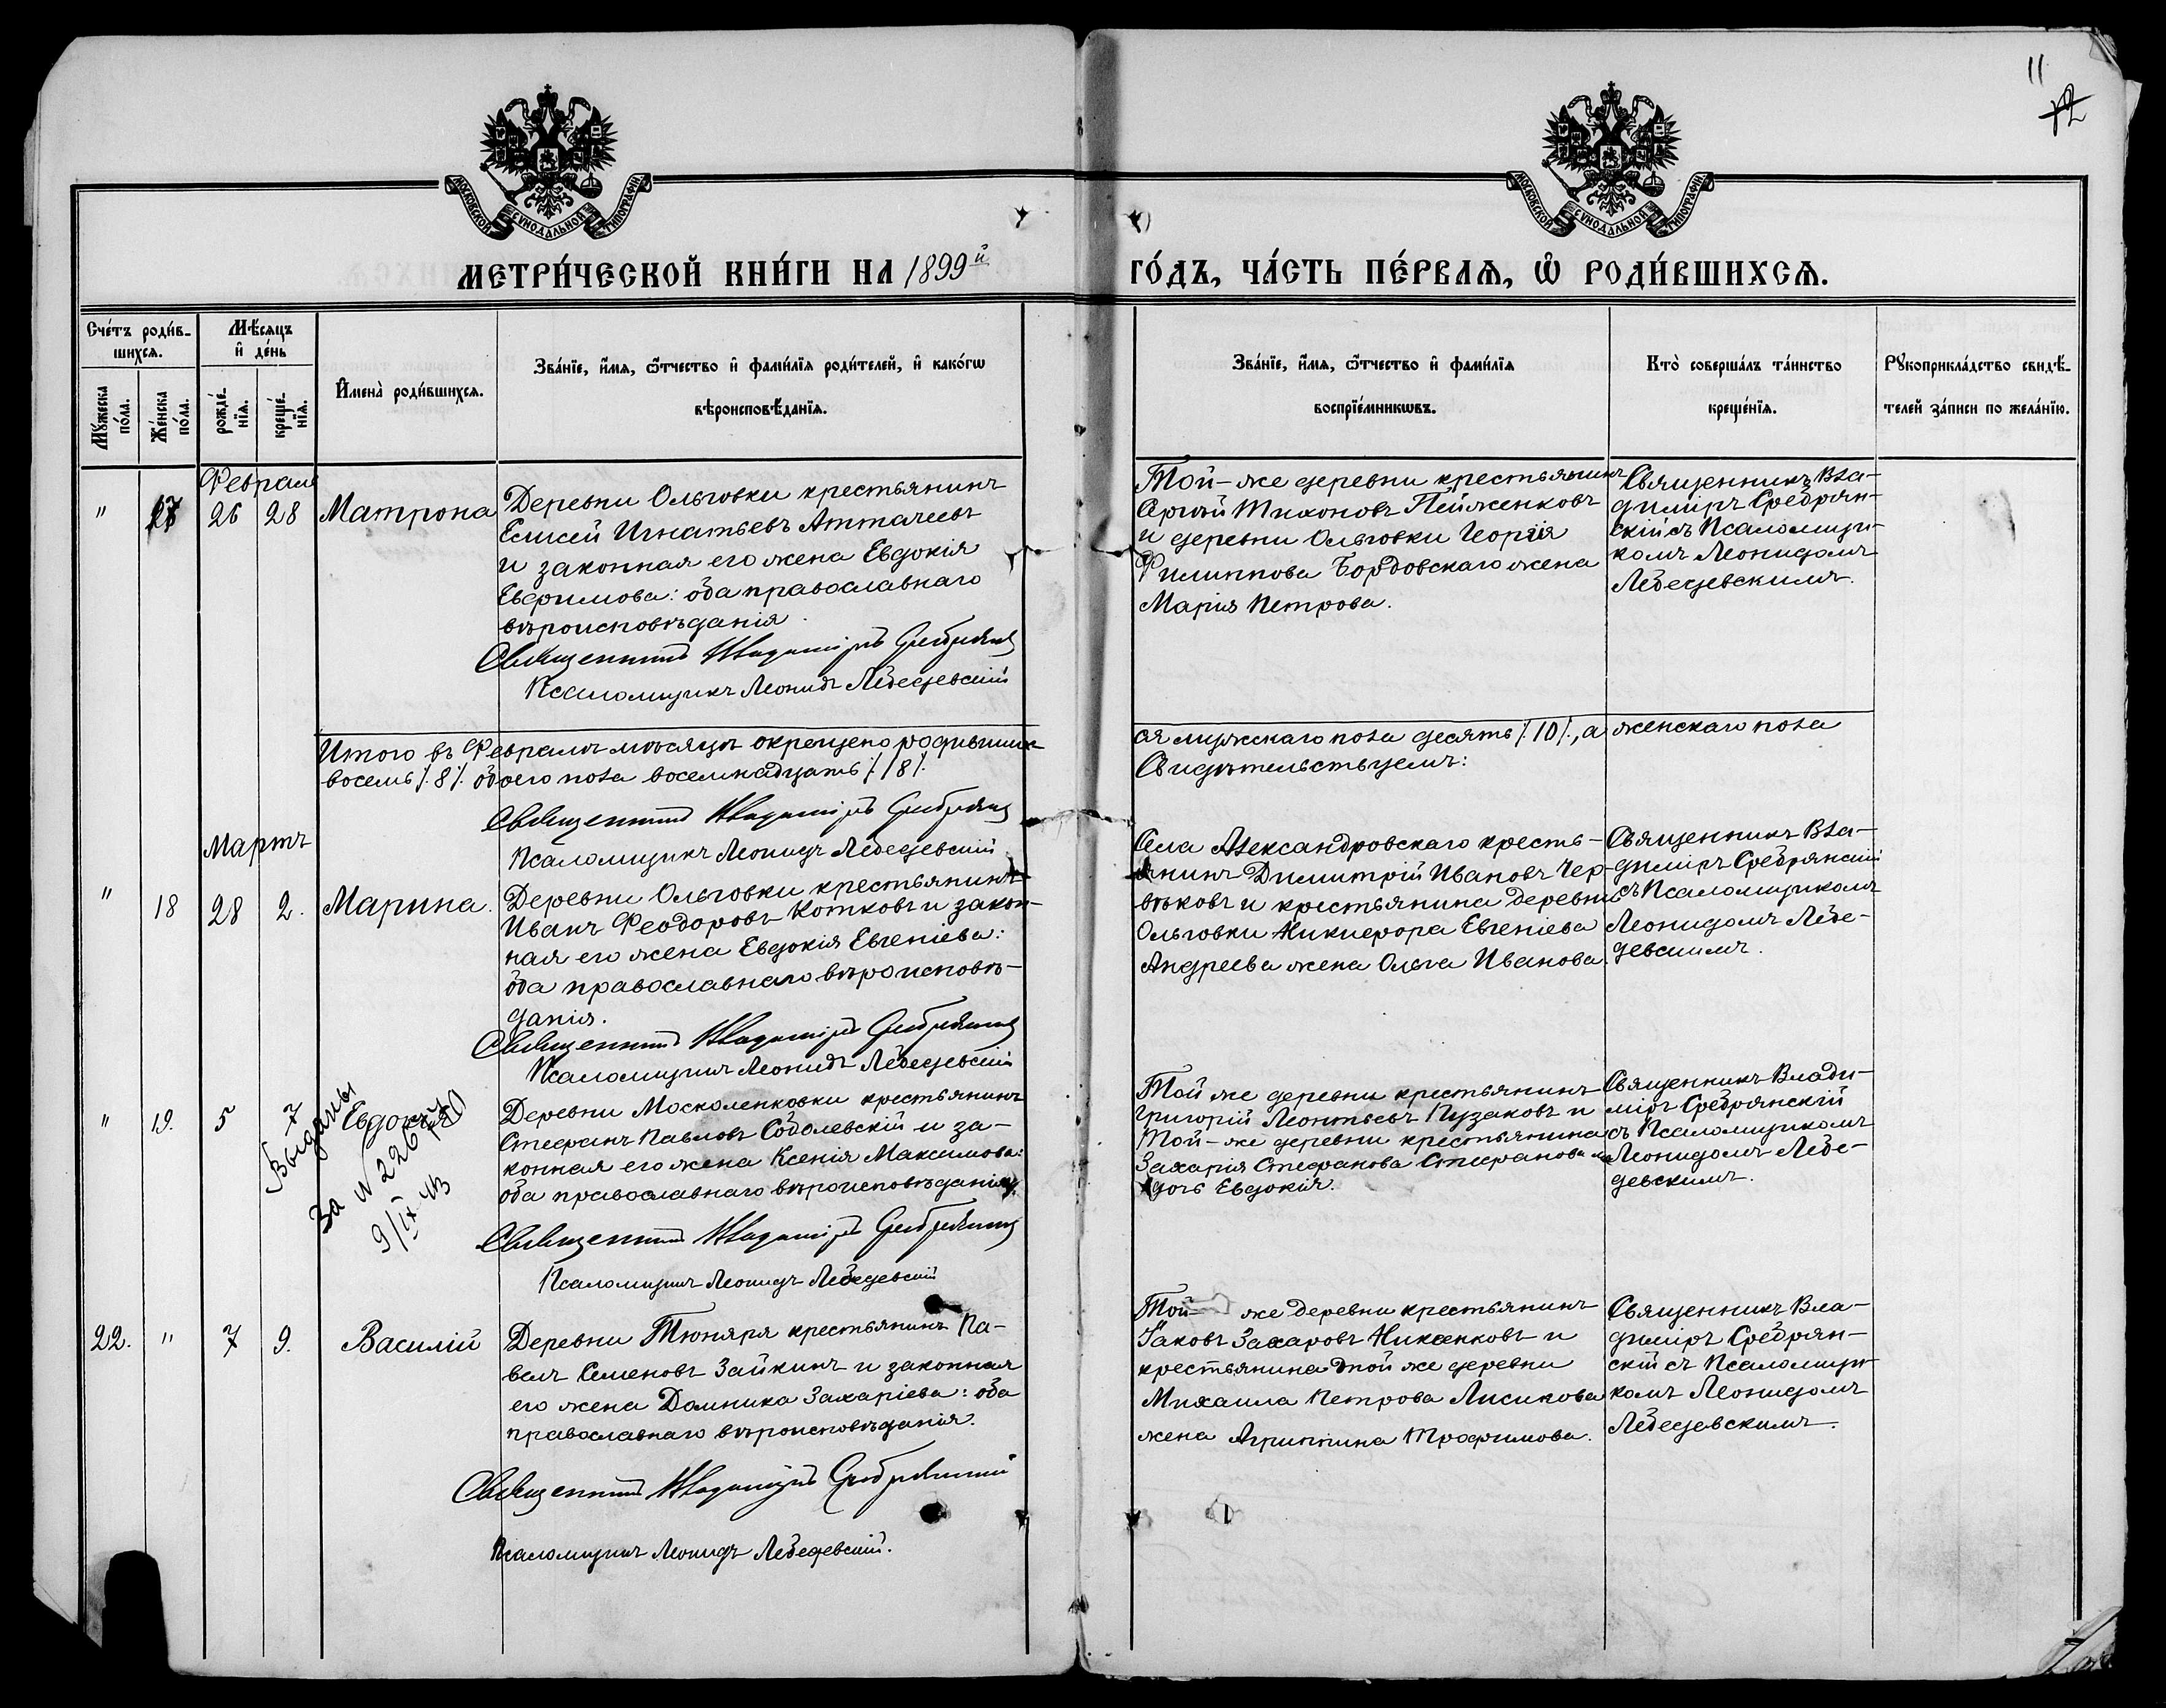 11
12
МОСКОВСКОЙ СѴНОДАЛЬНОЙ ТИПОГРАФІИ
МОСКОВСКОЙ СѴНОДАЛЬНОЙ ТИПОГРАФІИ
МЕТРИ́ЧЕСКОЙ КНИ́ГИ НА 1899й
ГО́ДЪ, ЧА́СТЬ ПЕ́РВАѦ, Ѽ РОДИ́ВШИХСѦ.
Сче́тъ роди́в-
шихсѧ.
Мѣ́сѧцъ
и҆ де́нь
Мꙋ́жеска
по́ла.
Же́нска
по́ла.
рожде́-
нїѧ.
креще́-
нїѧ.
И҆мена̀ роди́вшихсѧ.
Зва́нїе, и҆́мѧ, ѻ҆́тчество и҆ фами́лїѧ роди́телей, и҆ како́гѡ
вѣроисповѣ́данїѧ.
Зва́нїе, и҆́мѧ, ѻ҆́тчество и҆ фами́лїѧ
воспрїе́мникѡвъ.
Кто̀ соверша́лъ та́инство
креще́нїѧ.
Рꙋкоприкла́дство свидѣ́-
телей за́писи по жела́нїю.
Февраль
" 17 26 28 Матрона
Деревни Ольговки крестьянинъ
Елисей Игнатьевъ Атпачеевъ
и законная его жена Евдокія
Евфимова: оба православнаго
вѣроисповѣданія.
Священникъ Владиміръ Сребрянскій
Псаломщикъ Леонидъ Лебедевскій
Той-же деревни крестьянинъ
Сергѣй Тихоновъ Пейженковъ
и деревни Ольговки Георгія
Филиппова Бордовскаго жена
Марія Петрова.
Священникъ Вла-
диміръ Сребрян-
скій съ Псаломщи-
комъ Леонидомъ
Лебедевскимъ.
Итого въ Февралѣ мѣсяцѣ окрещено родивших-
ся мужскаго пола десять /.10/., а женскаго пола
восемь /.8/. обоего пола восемнадцать /.18/.
Свидѣтельствуемъ:
Священникъ Владиміръ Сребрянскій
Псаломщикъ Леонидъ Лебедевскій
Мартъ
" 18 28 2. Марина.
Деревни Ольговки крестьянинъ
Иванъ Феодоровъ Котковъ и закон-
ная его жена Евдокія Евгеніева:
оба православнаго вѣроисповѣ-
данія.
Священникъ Владиміръ Сребрянскій
Псаломщикъ Леонидъ Лебедевскій
Села Александровскаго кресть-
янинъ Димитрій Ивановъ Чер-
вяковъ и крестьянина деревни
Ольговки Никифора Евгеніева
Андреева жена Ольга Иванова.
Священникъ Вла-
диміръ Сребрянскій
съ Псаломщикомъ
Леонидомъ Лебе-
девскимъ.
" 19. 5 7 Евдокія
Выданы
За N 226
9/IX 43
Деревни Москаленковки крестьянинъ
Стефанъ Павловъ Соболевскій и за-
конная его жена Ксенія Максимова:
оба православнаго вѣроисповѣданія.
Священникъ Владиміръ Сребрянскій
Псаломщикъ Леонидъ Лебедевскій
Той же деревни крестьянинъ
Григорій Леонтьевъ Пузаковъ и
Той-же деревни крестьянина
Захарія Стефанова Стефанова
дочь Евдокія.
Священникъ Влади-
міръ Сребрянскій
съ Псаломщикомъ
Леонидомъ Лебе-
девскимъ.
22. " 7 9. Василій
Деревни Тюняря крестьянинъ Па-
велъ Семеновъ Зайкинъ и законная
его жена Домника Захаріева: оба
православнаго вѣроисповѣданія.
Священникъ Владиміръ Сребрянскій
Псаломщикъ Леонидъ Лебедевскій.
Той же деревни крестьянинъ
Іаковъ Захаровъ Никеенковъ и
крестьянина той же деревни
Михаила Петрова Лисикова
жена Агриппина Трофимова.
Священникъ Вла-
диміръ Сребрян-
скій съ Псаломщи-
комъ Леонидомъ
Лебедевскимъ.